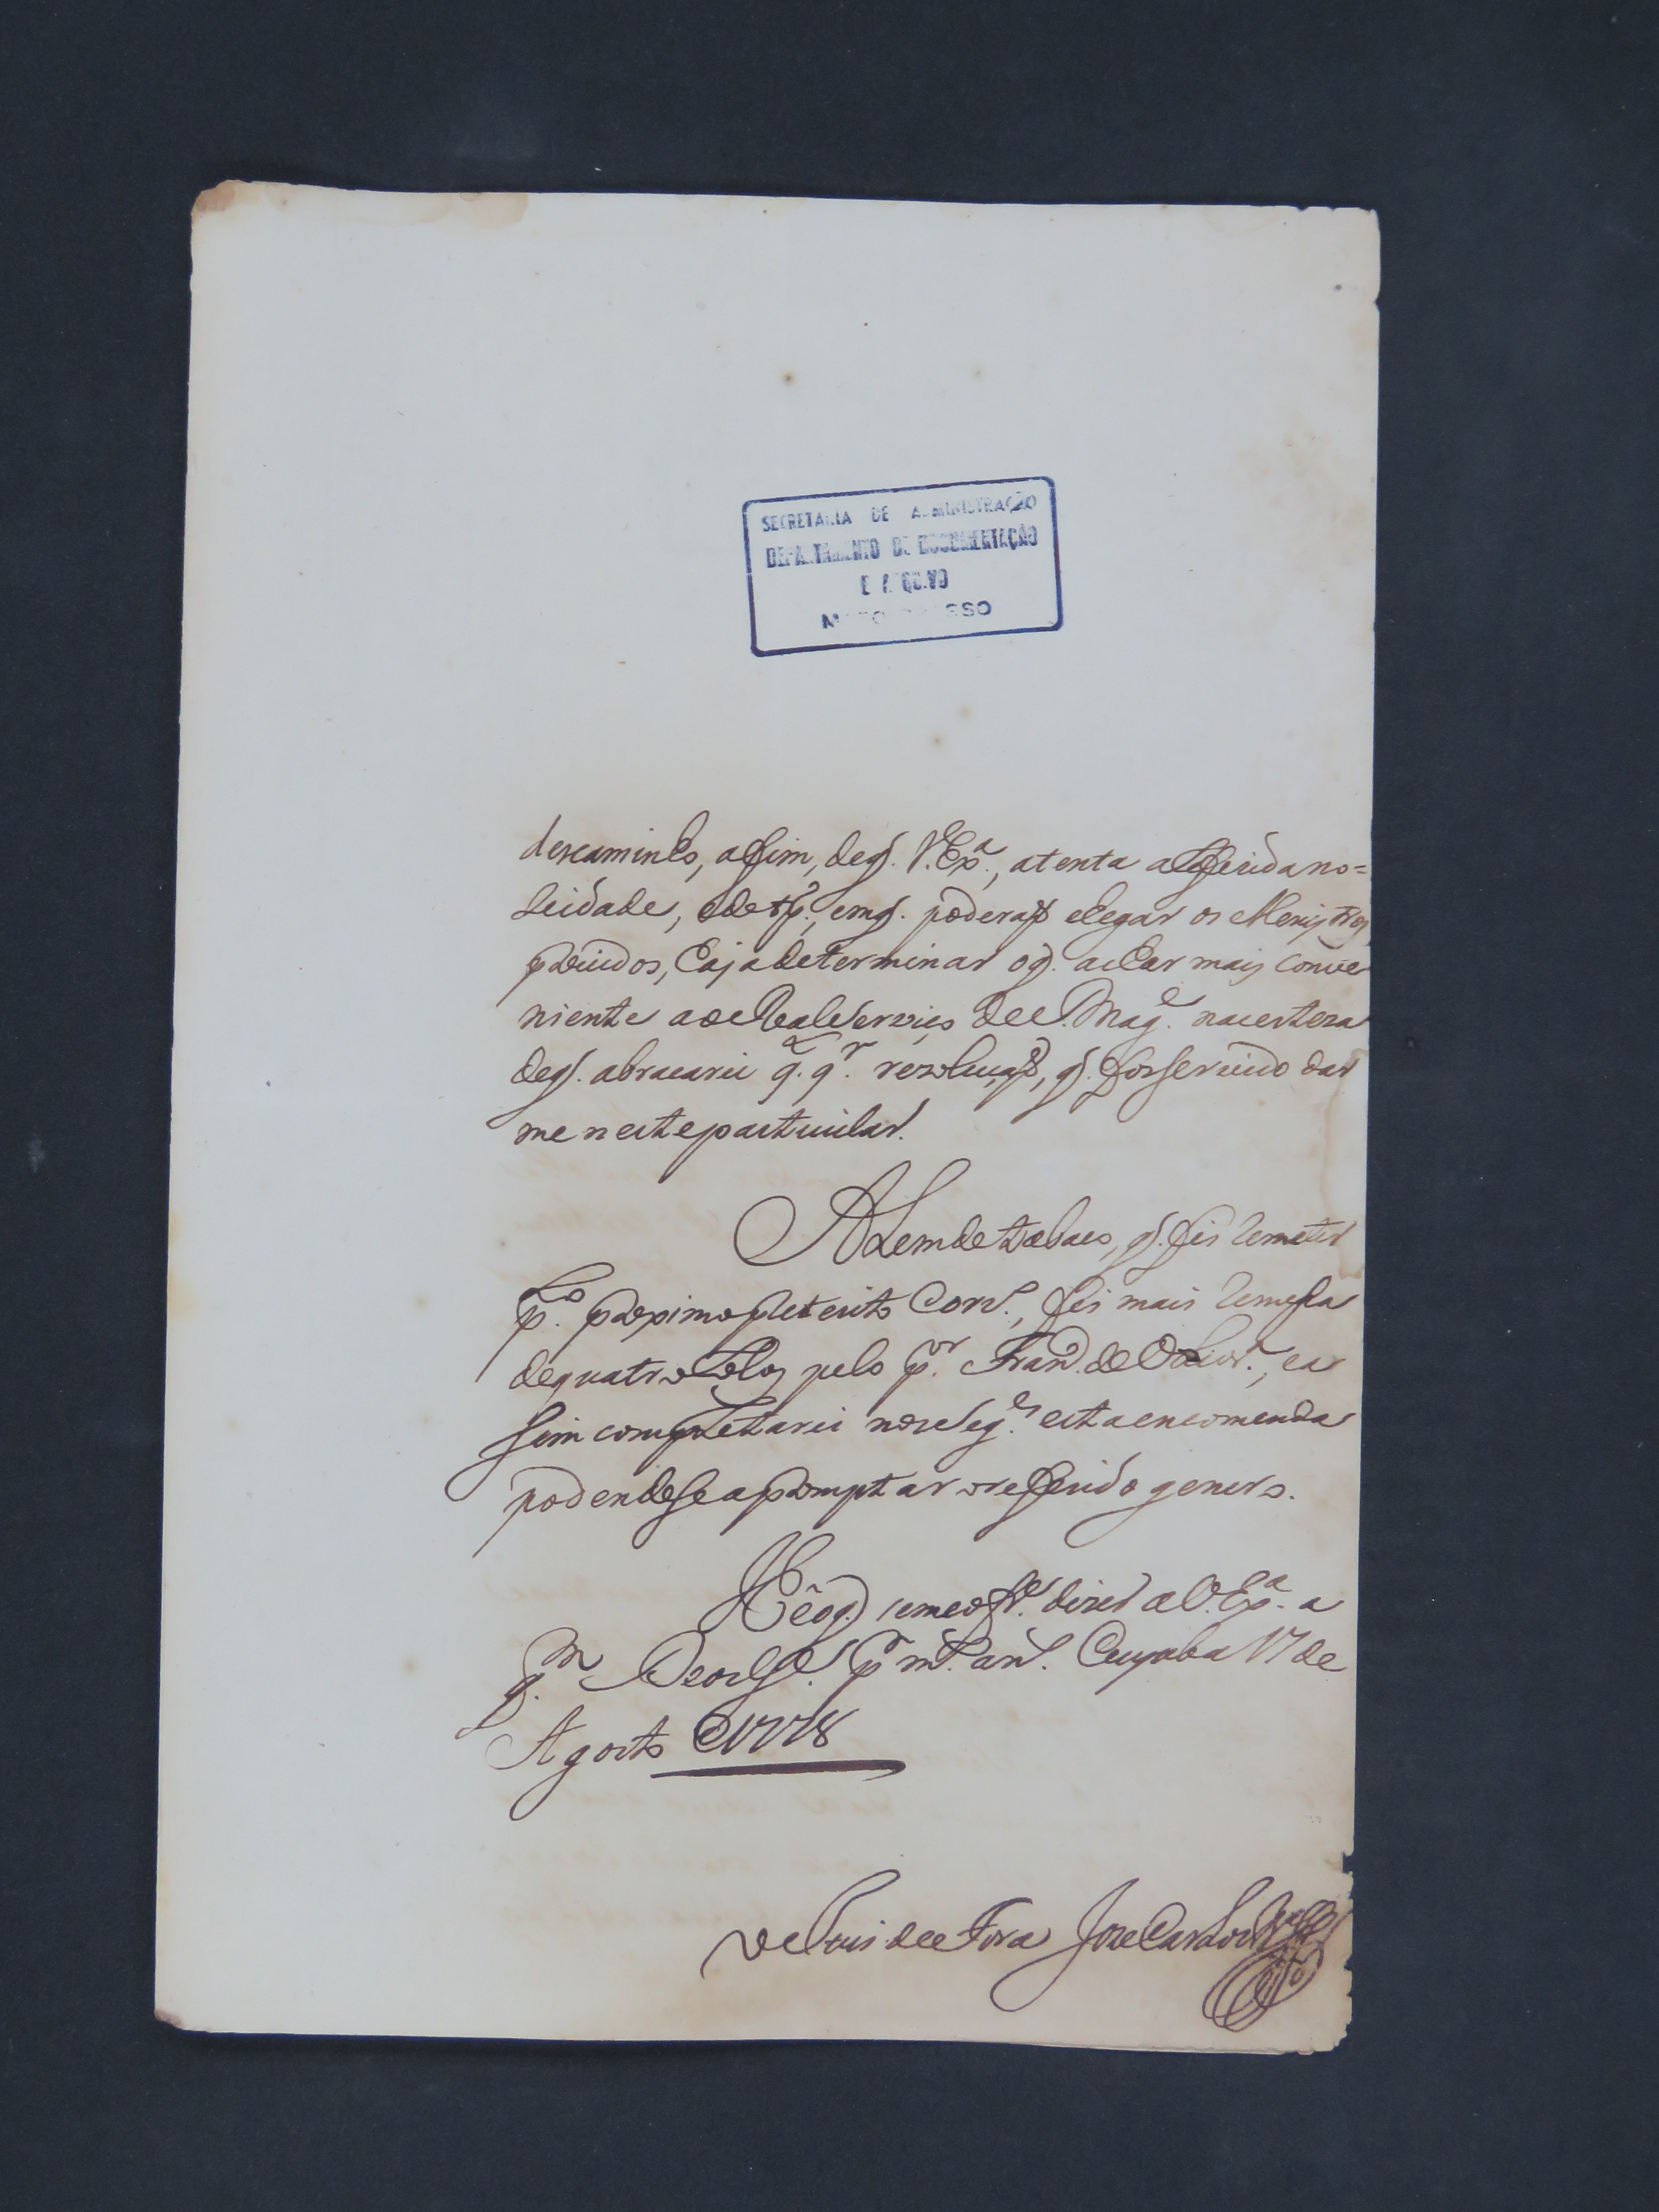 SECRETARIA DE ADMINISTRAÇÃO
DEPARTAMENTO DE DOCUMENTAÇÃO
E ARQUIVO
MATO GROSSO
descaminho, assim, deq. V. Exª., atenta a referida no=
emq. poderaõ chegar os Menistros
haja determinar oq. achar mais conve
niente ao Real Serviço de S. Magᵉ. na certeza
deq. abracarei q. qʳ. rezoluçaõ, q. for servido dar
me neste particular.
Alem de q. fis remeter
pᵒ. proximo preterito Corrᵒ., fis mais remessa
de quatro pelo pᵒʳ. Franᶜᵒ. de Olivʳᵃ., ea
sim completarei no segᵗᵉ. esta encomenda
podendose apromptar o referido genero.
He oq. seme ofᵉ. dizer a V. Exª. a
q.ᵐ Deos gᵈᵉ. pʳ mˢ. anˢ. Cuyaba 17 de
Agosto de 1778
O Juis de Fora Joze Carlos Prª